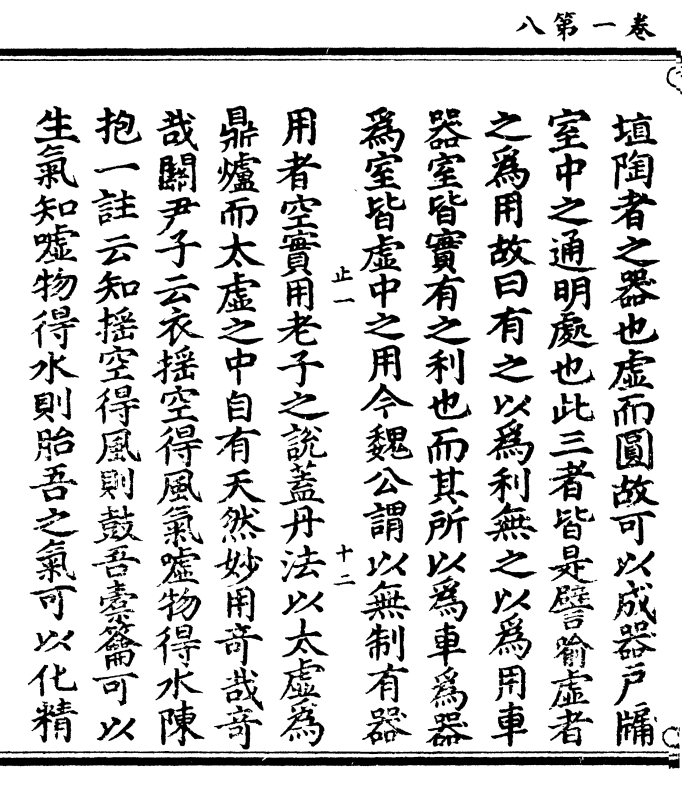 卷一第八
埴陶者之器也虛而圓故可以成器戶牖
室中之通明處也此三者皆是譬喻虛者
之爲用故曰有之以爲利無之以爲用車
器室皆實有之利也而其所以爲車爲器
爲室皆虛中之用今魏公謂以無制有器
止一 十二
用者空實用老子之說蓋丹法以太虛爲
鼎爐而太虛之中自有天然妙用竒哉竒
哉關尹子云衣揺空得風氣噓物得水陳
抱一註云知揺空得風則鼓吾橐籥可以
生氣知噓物得水則胎吾之氣可以化精